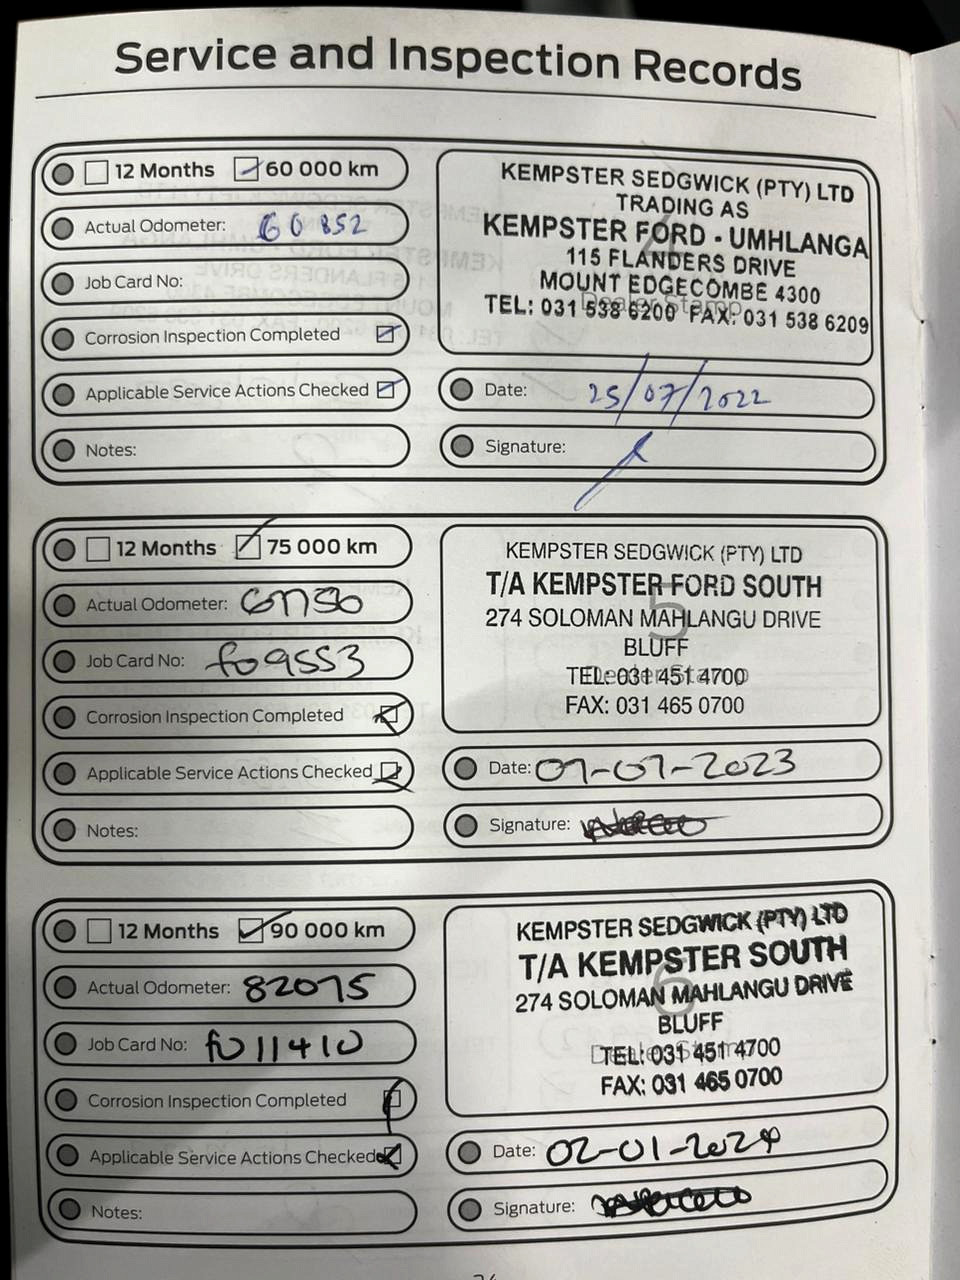 Service and Inspection Records
12 Months 60 000 km
Actual Odometer: 60 852
Job Card No:
Corrosion Inspection Completed
Applicable Service Actions Checked
Notes:
KEMPSTER SEDGWICK (PTY) LTD
TRADING AS
KEMPSTER FORD - UMHLANGA
115 FLANDERS DRIVE
MOUNT EDGECOMBE 4300
TEL: 031 538 6200 FAX: 031 538 6209
4
Dealer Stamp
Date: 25/07/2022
Signature:
12 Months 75 000 km
Actual Odometer:
Job Card No: f09553
Corrosion Inspection Completed
Applicable Service Actions Checked
Notes:
KEMPSTER SEDGWICK (PTY) LTD
T/A KEMPSTER FORD SOUTH
274 SOLOMAN MAHLANGU DRIVE
BLUFF
TEL: 031 451 4700
FAX: 031 465 0700
5
Dealer Stamp
Date: 07-07-2023
Signature:
12 Months 90 000 km
Actual Odometer: 82075
Job Card No: f011410
Corrosion Inspection Completed
Applicable Service Actions Checked
Notes:
KEMPSTER SEDGWICK (PTY) LTD
T/A KEMPSTER SOUTH
274 SOLOMAN MAHLANGU DRIVE
BLUFF
TEL: 031 451 4700
FAX: 031 465 0700
6
Dealer Stamp
Date: 02-01-2024
Signature: